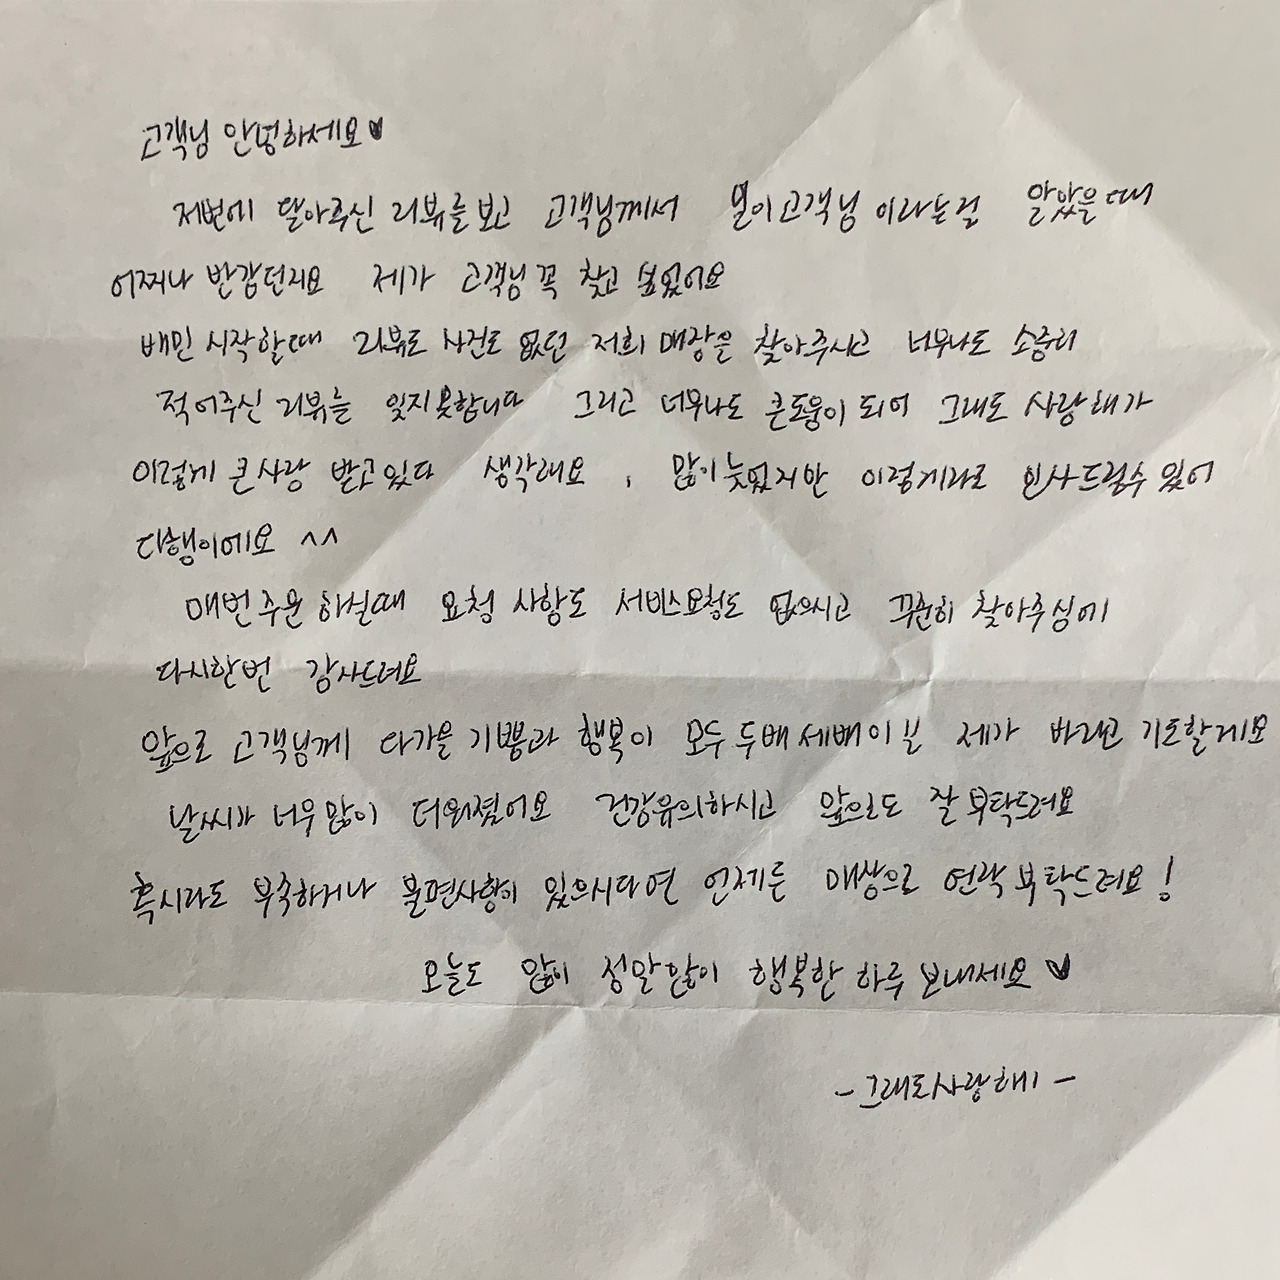 고객님 안녕하세요♥
저번에 달아주신 리뷰를 보고 고객님께서 이고객님 이라는걸 알았을때
어찌나 반갑던지요 제가 고객님 꼭 찾고 싶었어요
배민 시작할때 리뷰도 사진도 없던 저희 매장을 찾아주시고 너무나도 소중히
적어주신 리뷰를 잊지못합니다 그리고 너무나도 큰도움이 되어 그래도 사랑해가
이렇게 큰사랑 받고있다 생각해요, 많이늦었지만 이렇게라도 인사드릴수 있어
다행이에요 ^^
매번 주문 하실때 요청 사항도 서비스요청도 없으시고 꾸준히 찾아주심에
다시한번 감사드려요
앞으로 고객님께 다가올 기쁨과 행복이 모두 두배 세배이길 제가 바라고 기도할게요
날씨가 너무많이 더워졌어요 건강유의하시고 앞으로도 잘 부탁드려요
혹시라도 부족하거나 불편사항이 있으시다면 언제든 매장으로 연락 부탁드려요!
오늘도 많이 정말많이 행복한 하루 보내세요♥
- 그래도사랑해 -